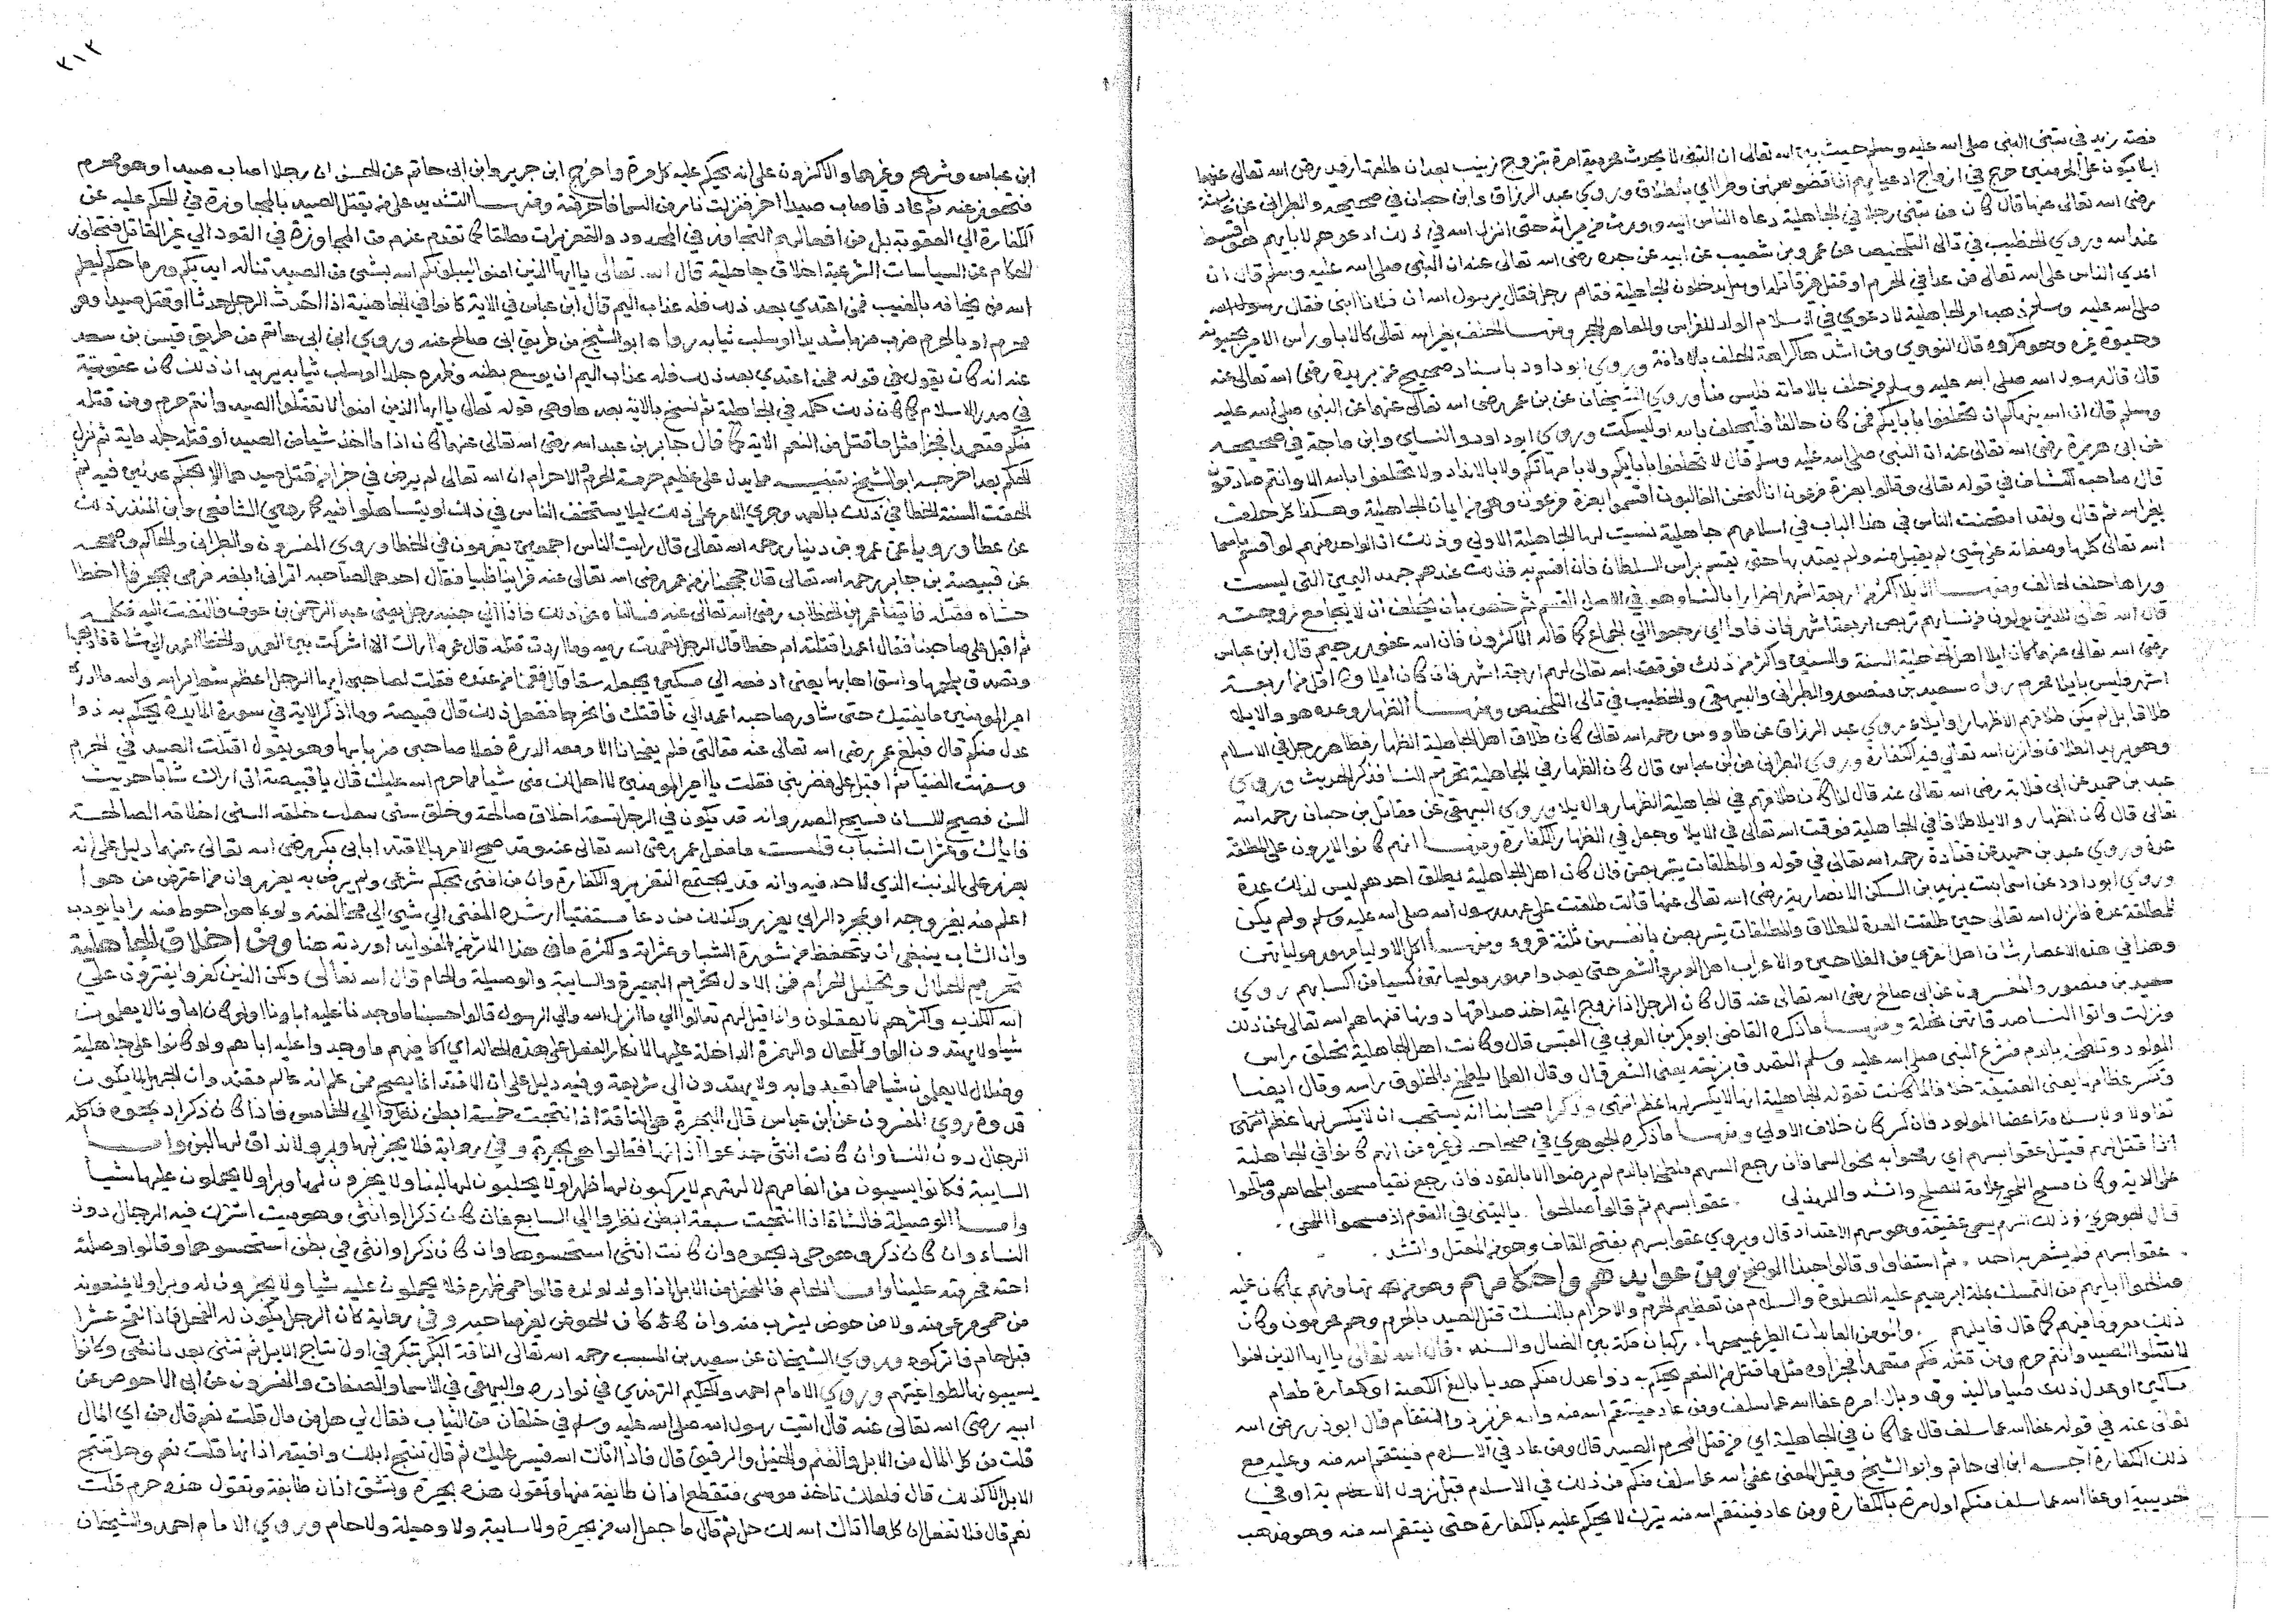 قصة زيد في تبني النبي صلى الله عليه وسلم حيث بين الله تعالى ان التبني لا يحدث حرمة امره بتزوج زينب بعد ان طلقها زيد رضي الله تعالى عنهما
لكيلا يكون على المومنين حرج في ازواج ادعيائهم اذا قضوا منهن وطرا اي بالطلاق وروي عبد الرزاق وابن حبان في صحيحه والطبراني عن عايشة
رضي الله تعالى عنها قال كان من تبنى رجلا في الجاهلية دعاه الناس ابنه وورث من ميراثه حتى انزل الله في ذلك ادعوهم لابايهم هو اقسط
عند الله وروي الخطيب في تالي التلخيص عن عمرو بن شعيب عن ابيه عن جده رضي الله تعالى عنه ان النبي صلى الله عليه وسلم قال ان
اعدي الناس على الله تعالى من عدا في الحرم او قتل غير قاتله او قتل بدخول الجاهلية فقام رجل فقال يرسول الله ان فلانا ابني فقال رسول الله
صلى الله عليه وسلم ذهب امر الجاهلية لا دعوي في الاسلام الولد للفراش وللعاهر الحجر ومنها الحلف بغير الله تعالى كالابا وراس الامير
وحيوة غيره وهو مكروه قال النووي ومن اشدها كراهة الحلف بالامانة وروي ابو داود باسناد صحيح عن بريدة رضي الله تعالى عنه
قال قال رسول الله صلى الله عليه وسلم من حلف بالامانة فليس منا وروي الشيخان عن بن عمر رضي الله تعالى عنهما عن النبي صلى الله عليه
وسلم قال ان الله ينهاكم ان تحلفوا بابايكم فمن كان حالفا فليحلف بالله او ليسكت وروي ابو داود والنساي وابن ماجة في صحيحه
عن ابي هريرة رضي الله تعالى عنه ان النبي صلى الله عليه وسلم قال لا تحلفوا بابايكم ولا بامهاتكم ولا بالانداد ولا تحلفوا بالله الا وانتم صادقون
قال صاحب الكشاف في قوله تعالى وقالوا بعزة فرعون انا لنحن الغالبون اقسموا بعزة فرعون وهي من ايمان الجاهلية وهكذا كل حلف
بغير الله ثم قال ولقد استحدث الناس في هذا الباب في اسلامهم جاهلية نسيت لها الجاهلية الاولي وذلك ان الواحد منهم لو اقسم باسما
الله تعالى كلها وصفاته على شي لم يقبل منه ولم يعتد بها حتى يقسم براس السلطان فاذا اقسم به فذلك عندهم جهد اليمين التي ليست
وراها حلف لحالف ومنها الايلا اكثر من اربعة اشهر اضرارا بالنسا وهو في الاصل القسم ثم خص بان يحلف ان لا يجامع زوجته
قال الله تعالى للذين يولون من نسايهم تربص اربعة اشهر فان فاوا اي رجعوا الي الجماع كما قاله الاكثرون فان الله غفور رحيم قال ابن عباس
رضي الله تعالى عنهما كان ايلا اهل الجاهلية السنة والسنتين واكثر من ذلك فوقت الله تعالى لهم اربعة اشهر فان كان ايلاوه اقل من اربعة
اشهر فليس بايلا محرم رواه سعيد بن منصور والطبراني والبيهقي والخطيب في تالي التلخيص ومنها الظهار وعده هو والايلا
طلاقا بل لم يكن طلاقهم الا ظهارا وايلاء روي عبد الرزاق عن طاووس رحمه الله تعالى كان طلاق اهل الجاهلية الظهار فظاهر رجل في الاسلام
وهو يريد الطلاق فانزل الله تعالى فيه الكفارة وروي الطبراني عن ابن عباس قال كان الظهار في الجاهلية تحريم النسا فذكر الحديث وروي
عبد بن حميد عن ابي قلابة رضي الله تعالى عنه قال انما كان طلاقهم في الجاهلية الظهار والايلا وروي البيهقي عن مقاتل بن حبان رحمه الله
تعالى قال كان الظهار والايلا طلاقا في الجاهلية فوقت الله تعالى في الايلا وجعل في الظهار الكفارة ومنها انهم كانوا لا يرون على المطلقة
عدة وروي عبد بن حميد عن قتادة رحمه الله تعالى في قوله والمطلقات يتربصن قال كان اهل الجاهلية يطلق احدهم ليس لذلك عدة
وروي ابو داود عن اسما بنت يزيد بن السكن الانصارية رضي الله تعالى عنها قالت طلقت على عهد رسول الله صلى الله عليه وسلم ولم يكن
للمطلقة عدة فانزل الله تعالى حين طلقت العدة للطلاق والمطلقات يتربصن بانفسهن ثلثة قروء ومنها اكل الاوليا مهور مولياتهن
وهذا في هذه الاعصار شان اهل القري من الفلاحين والاعراب اهل الوبر والشعر حتى يعدوا مهور مولياتهن كسبا من اكسابهم روي
سعيد بن منصور والمفسرون عن ابي صالح رضي الله تعالى عنه قال كان الرجل اذا زوج ايمة اخذ صداقها دونها فنهاهم الله تعالى عن ذلك
ونزلت واتوا النسا صدقاتهن نحلة ومنها ما ذكره القاضي ابو بكر بن العربي في القبس قال وكانت اهل الجاهلية تحلق راس
المولود وتلطخه بالدم فشرع النبي صلى الله عليه وسلم التصدق بزنته يعني الشعر قال وقال العلما يلطخ بالخلوق راسه وقال ايضا
وتكسر عظامها يعني العقيقة خلافا لما كانت تقوله الجاهلية انها لا يكسر لها عظم انتهى وذكر اصحابنا انه يستحب ان لا يكسر لها عظم
تفاولا بسلامة اعضا المولود فان كسر كان خلاف الاولي ومنها ما ذكره الجوهري في صحاحه وغيره من انهم كانوا في الجاهلية
اذا قتل لهم قتيل عقوا بسهم اي رموا به نحو السما فان رجع السهم ملطخا بالدم لم يرضوا الا بالقود فان رجع نقيا مسحوا لحاهم وصالحوا
على الدية وكان مسح اللحي علامة للصلح وانشد والهذلي . عقوا بسهم ثم قالوا صالحوا . يا ليتني في القوم اذ مسحوا اللحي .
قال الجوهري وذلك السهم يسمى عقيقة وهو سهم الاعتذار قال ويروي عقوا بسهم بفتح القاف وهو من المعتل وانشد .
. عقوا بسهم فلم يشعر به احد . ثم استفاوا وقالوا حبذا الوضح ومن عوايدهم واحكامهم
ذلك معروفا فيهم كما قال قايلهم . والمومن العايذات الطير يمسحها . ركبان مكة بين الغيل والسند . قال الله تعالى يا ايها الذين امنوا
لا تقتلوا الصيد وانتم حرم ومن قتله منكم متعمدا فجزاوه مثل ما قتل من النعم يحكم به ذوا عدل منكم هديا بالغ الكعبة او كفارة طعام
مساكين او عدل ذلك صياما ليذوق وبال امره عفا الله عما سلف ومن عاد فينتقم الله منه والله عزيز ذو انتقام قال ابو ذر رضي الله
تعالى عنه في قوله عفا الله عما سلف قال عما كان في الجاهلية اي من قتل المحرم الصيد قال ومن عاد في الاسلام فينتقم الله منه وعليه مع
ذلك الكفارة اخرجه ابن ابي حاتم وابو الشيخ وقيل المعنى عفى الله عما سلف منكم من ذلك في الاسلام قبل نزول الاية او في
الحديبية او عفا الله عما سلف منكم اول مرة بالكفارة ومن عاد فينتقم الله منه يترك لا يحكم عليه بالكفارة حتى ينتقم الله منه وهو مذهب
٢١٢
ابن عباس وشريح وغيرهما والاكثرون على انه يحكم عليه كل مرة واخرج ابن جرير وابن ابي حاتم عن الحسن ان رجلا اصاب صيدا وهو محرم
فتجوز عنه ثم عاد فاصاب صيدا اخر فنزلت نار من السما فاحرقته ومنها التشديد على من يقتل الصيد بالمجاوزة في الحكم عليه عن
الكفارة الي العقوبة بل من افعالهم التجاوز في الحدود والتعزيرات مطلقا كما تقدم عنهم من المجاوزة في القود الي غير القاتل فتجاوز
الحكام عن السياسات الشرعية اخلاق جاهلية قال الله تعالى يا ايها الذين امنوا ليبلونكم الله بشي من الصيد تناله ايديكم ورماحكم ليعلم
الله من يخافه بالغيب فمن اعتدي بعد ذلك فله عذاب اليم قال ابن عباس في الاية كانوا في الجاهلية اذا احدث الرجل حدثا او قتل صيدا وهو
محرم او بالحرم ضرب ضربا شديدا وسلب ثيابه رواه ابو الشيخ من طريق ابي صالح عنه وروي ابن ابي حاتم من طريق قيس بن سعد
عنه انه كان يقول في قوله فمن اعتدي بعد ذلك فله عذاب اليم ان يوسع بطنه وظهره جلدا وسلب ثيابه يريد ان ذلك كان عقوبة
في صدر الاسلام كما كان ذلك حكمه في الجاهلية ثم نسخ بالاية بعدها وهي قوله تعالى يا ايها الذين امنوا لا تقتلوا الصيد وانتم حرم ومن قتله
منكم متعمدا فجزا مثل ما قتل من النعم الاية كما قال جابر بن عبد الله رضي الله تعالى عنهما كان اذا ما اخذ شيا من الصيد او قتله جلد ماية ثم نزل
الحكم بعد اخرجه ابو الشيخ تنبيه مما يدل على عظيم حرمة الحرم والاحرام ان الله تعالى لم يرض في جزا من قتل صيدهما الا بحكم عدلين فيه ثم
الحقت السنة الخطا في ذلك بالعمد وجري الامر على ذلك ليلا يستخف الناس في ذلك او يتساهلوا فيه كما روي الشافعي وابن المنذر ذلك
عن عطا ورويا عن عمرو بن دينار رحمه الله تعالى قال رايت الناس اجمعين يغرمون في الخطا وروي المفسرون والطبراني والحاكم وصححه
عن قبيصة بن جابر رحمه الله تعالى قال حججنا زمن عمر رضي الله تعالى عنه فراينا ظبيا فقال احدهما لصاحبه اتراني ابلغه فرمي بحجر فما اخطا
حشاه فقتله فاتينا عمر بن الخطاب رضي الله تعالى عنه فسالناه عن ذلك فاذا الي جنبه رجل يعني عبد الرحمن بن عوف فالتفت اليه فكلمه
ثم اقبل على صاحبنا فقال اعمدا قتلته ام خطا قال الرجل لقد تعمدت رميه وما اردت قتله قال عمر ما اراك الا اشركت بين العمد والخطا اعمد الي شاة فاذبحها
وتصدق بلحمها واسق اهابها يعني ادفعه الي مسكين يجعله سقا فقمنا من عنده فقلت لصاحبي ايها الرجل اعظم شعاير الله والله ما دري
امير المومنين ما يفتيك حتى شاور صاحبه اعمد الي ناقتك فانحرها ففعل ذلك قال قبيصة وما اذكر الاية في سورة المايدة يحكم به ذوا
عدل منكم قال فبلغ عمر رضي الله تعالى عنه مقالتي فلم يفجانا الا ومعه الدرة فعلا صاحبي ضربا بها وهو يقول اقتلت الصيد في الحرم
وسفهت الفتيا ثم اقبل على فضربني فقلت يا امير المومنين لا احل لك مني شيا مما حرم الله عليك قال يا قبيصة اني اراك شابا حديث
السن فصيح اللسان فسيح الصدر وانه قد يكون في الرجل تسعة اخلاق صالحة وخلق سيئ يغلب خلقه السيئ اخلاقه الصالحة
فاياك وعثرات الشباب قلت ما فعل عمر رضي الله تعالى عنه وقد صح الامر بالاقتدا بابي بكر رضي الله تعالى عنهما دليل على انه
يعزر على الذنب الذي لا حد فيه وانه قد يجتمع التعزير والكفارة وان من افتى بحكم شرعي ولم يرض به يعزر وان من اعترض من هو
اعلم منه بغير وجه او بمجرد الراي يعزر وكذلك من دعا مستفتيا ارشده المفتي الي شي الي مخالفته ولو دعا هو احوط منه
وان الشاب ينبغي ان يتحفظ من شهوة الشباب وعثراته ولكثرة ما في هذا الاثر من الفوايد اوردته هنا ومن اخلاق الجاهلية
تحريم الحلال وتحليل الحرام فمن الاول تحريم البحيرة والسايبة والوصيلة والحام قال الله تعالى ولكن الذين كفروا يفترون على
الله الكذب واكثرهم لا يعقلون واذا قيل لهم تعالوا الي ما انزل الله والي الرسول قالوا حسبنا ما وجدنا عليه اباونا اولو كان اباوهم لا يعلمون
شيا ولا يهتدون الواو للحال والهمزة الداخلة عليها لانكار الفعل على هذه الحالة اي اكافيهم ما وجدوا عليه اباهم ولو كانوا على جاهلية
وضلال لا يعلمون شيا مما تعبدوا به ولا يهتدون الي شريعة وفيه دليل على ان الاقتدا انما يصح بمن علم انه عالم مهتد وان الجهل لا يكون
قدوة روي المفسرون عن ابن عباس قال البحيرة هي الناقة اذا انتجت خمسة ابطن نظروا الي الخامس فاذا كان ذكرا ذبحوه فاكله
الرجال دون النسا وان كانت انثى جدعوا اذانها فقالوا هي بحيرة وفي رواية فلا يجز لها وبر ولا يذاق لها لبن واما
السايبة فكانوا يسيبون من انعامهم لالهتهم لا يركبون لها ظهرا ولا يحلبون لها لبنا ولا يجزون لها وبرا ولا يحملون عليها شيا
واما الوصيلة فالشاة اذا انتجت سبعة ابطن نظروا الي السابع فان كان ذكرا او انثى وهو ميت اشترك فيه الرجال دون
النساء وان كان ذكرا وهو حي ذبحوه وان كانت انثى استحيوها وان كان ذكرا وانثى في بطن استحيوها وقالوا وصلته
اخته فحرمته علينا واما الحام فالفحل من الابل اذا ولد لولده قالوا حمى ظهره فلا يحملون عليه شيا ولا يجزون له وبرا ولا يمنعونه
من حمى مرعى منه ولا من حوض ليشرب منه وان كان الحوض لغير صاحبه وفي رواية كان الرجل يكون له الفحل فاذا انتج عشرا
قيل حام فاتركوه وروي الشيخان عن سعيد بن المسيب رحمه الله تعالى الناقة البكر تبكر في اول نتاج الابل ثم تثني بعد بانثى وكانوا
يسيبونها لطواغيتهم وروي الامام احمد والحكيم الترمذي في نوادره والبيهقي في الاسما والصفات والمفسرون عن ابي الاحوص عن
ابيه رضي الله تعالى عنه قال اتيت رسول الله صلى الله عليه وسلم في خلقان من الثياب فقال لي هل من مال قلت نعم قال من اي المال
قلت من كل المال من الابل والغنم والخيل والرقيق قال فاذا اتاك الله فلير عليك ثم قال تنتج ابلك وافية اذانها قلت نعم وهل تنتج
الابل الا كذلك قال فلعلك تاخذ موسى فتقطع اذان طايفة منها وتقول هذه بحيرة وتشق اذان طايفة وتقول هذه حرم قلت
نعم قال فلا تفعل ان كل ما اتاك الله لك حل ثم قال ما جعل الله من بحيرة ولا سايبة ولا وصيلة ولا حام وروي الامام احمد والشيخان